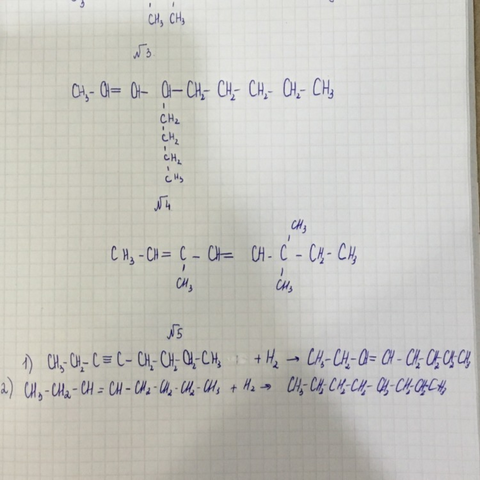 3
CH₃ CH₃
№3
CH₃-CH=CH-CH-CH₂-CH₂-CH₂-CH₂-CH₃
CH₂
CH₂
CH₂
CH₃
№4
CH₃
CH₃-CH=C-CH=CH-C-CH₂-CH₃
CH₃ CH₃
№5
1) CH₃-CH₂-C≡C-CH₂-CH₂-CH₂-CH₃ + H₂ → CH₃-CH₂-CH=CH-CH₂-CH₂-CH₂-CH₃
2) CH₃-CH₂-CH=CH-CH₂-CH₂-CH₂-CH₃ + H₂ → CH₃-CH₂-CH₂-CH₂-CH₂-CH₂-CH₂-CH₃